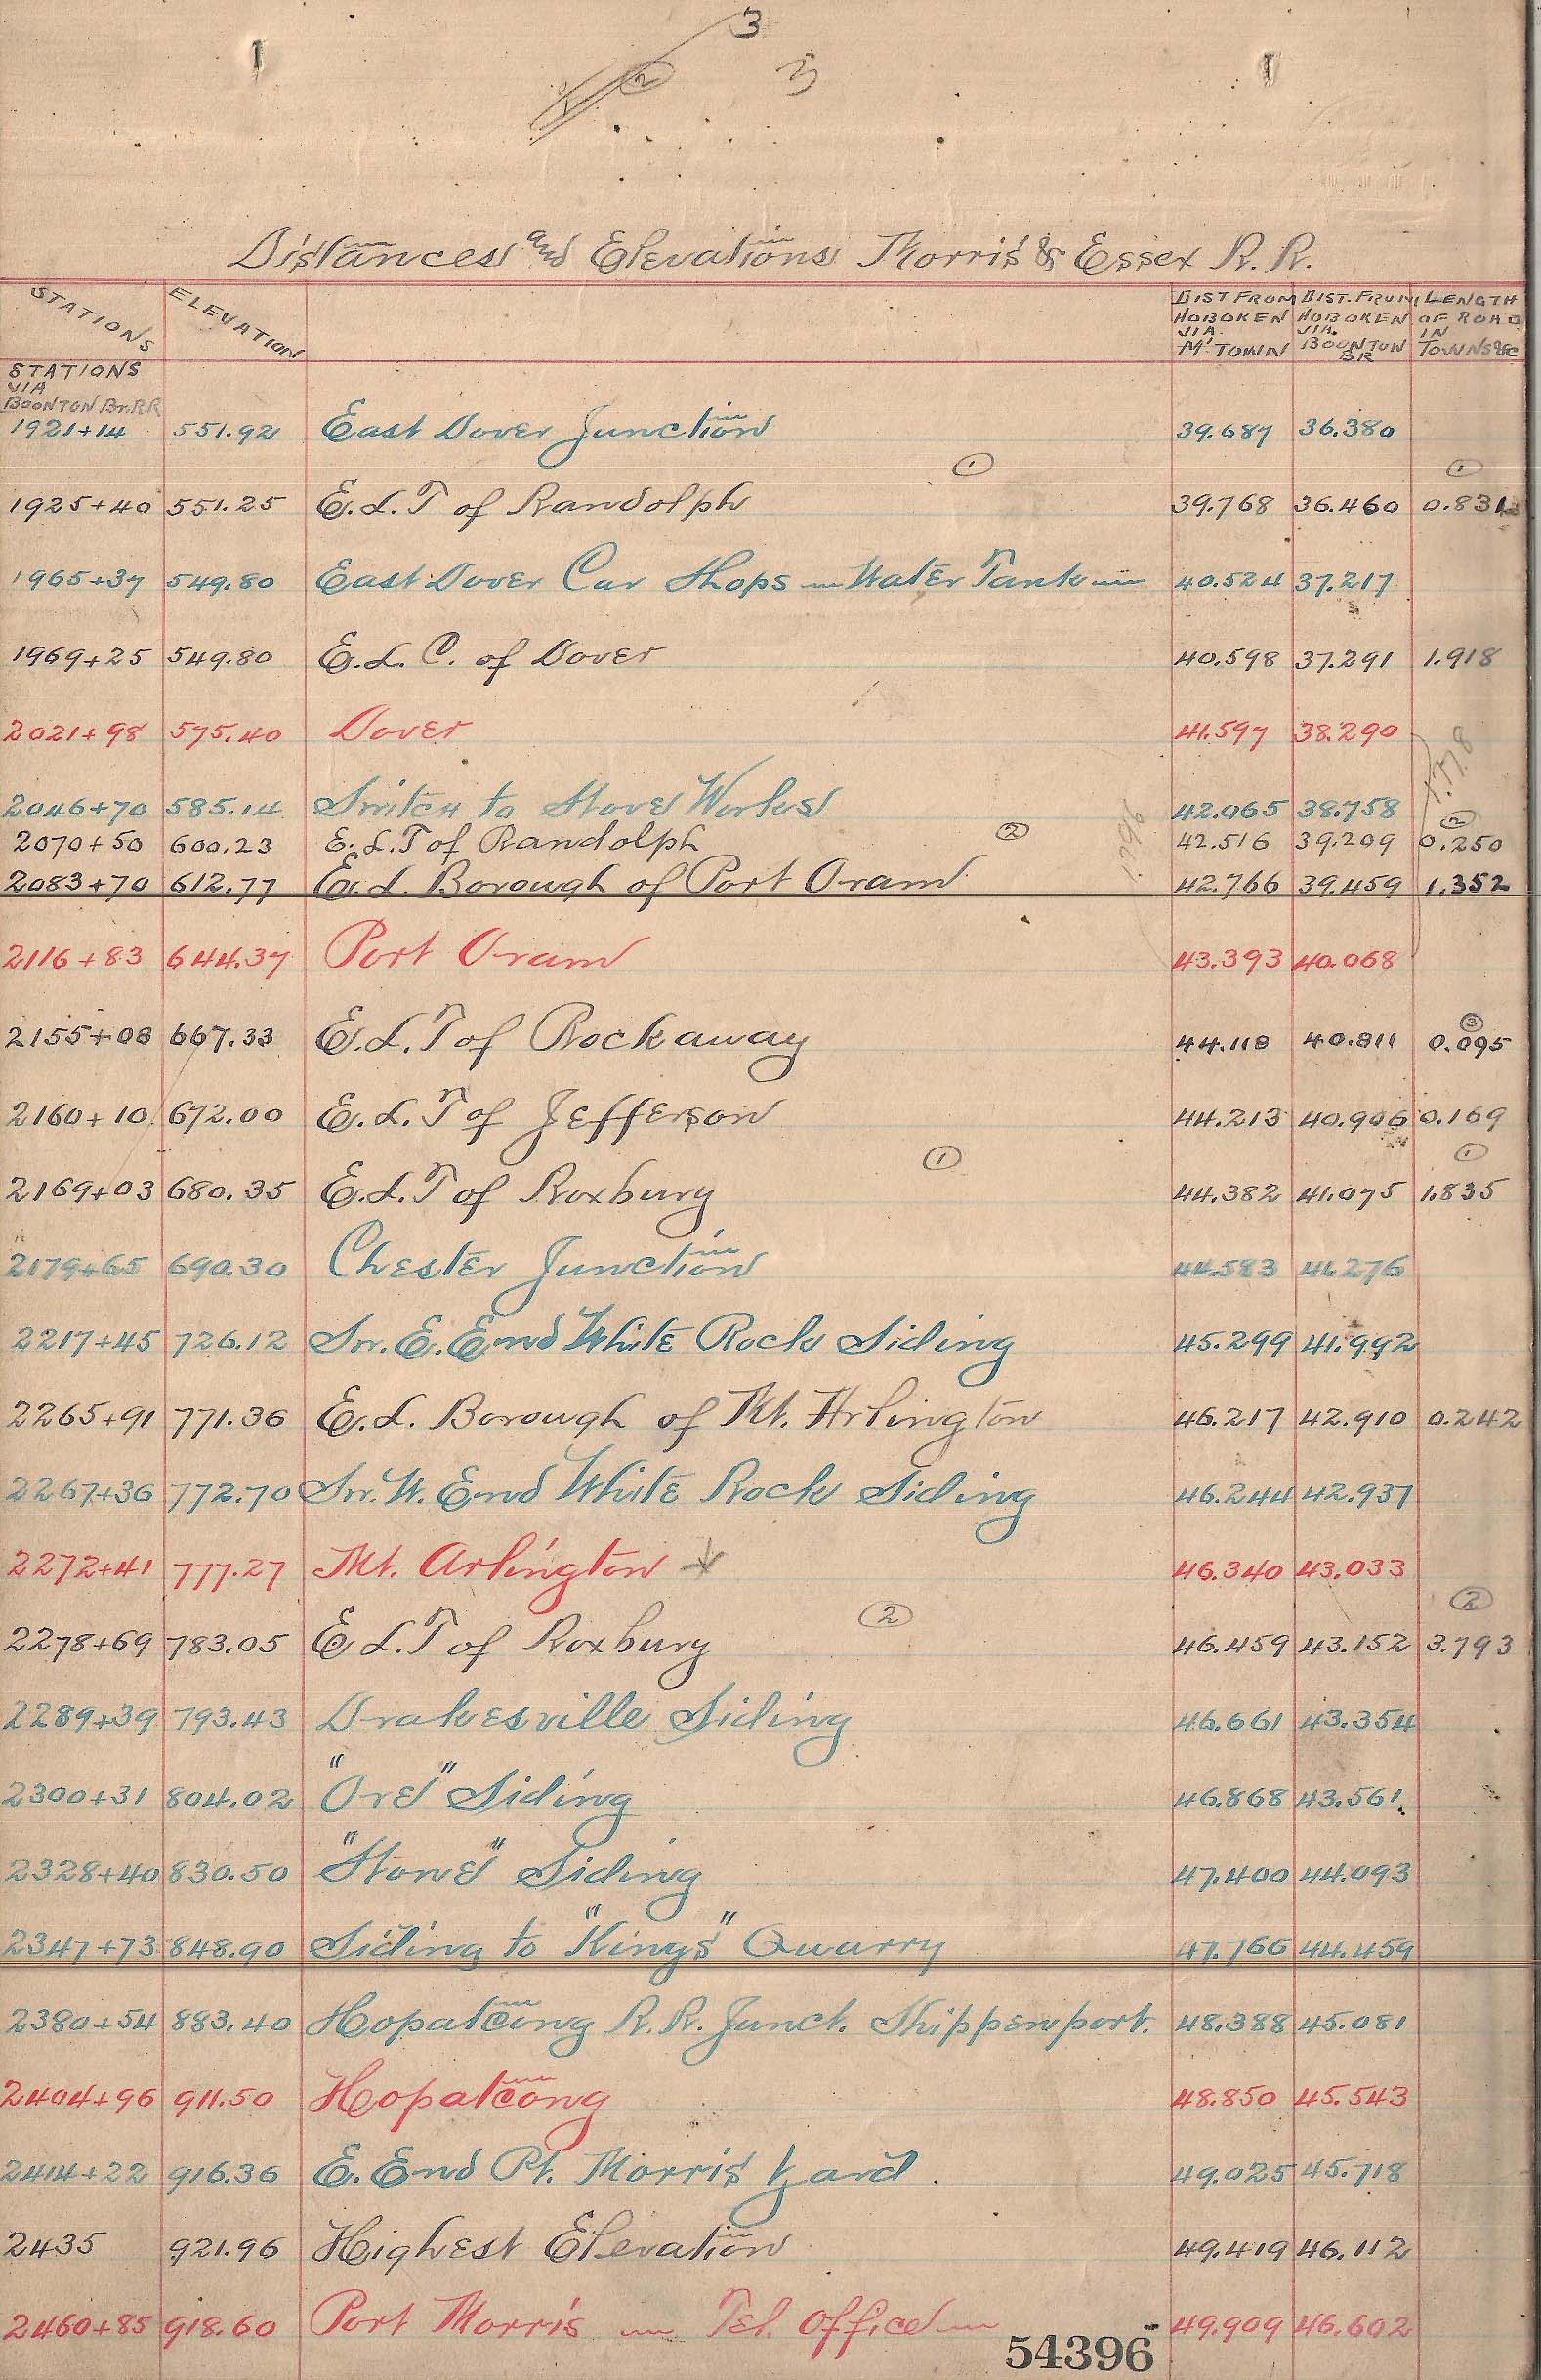 3
2
3
Distances and Elevations Morris & Essex R. R.
STATIONS ELEVATION DIST FROM HOBOKEN VIA M'TOWN DIST. FROM HOBOKEN VIA. BOONTON BR LENGTH OF ROAD IN TOWNS &c
STATIONS VIA BOONTON Br. RR
1921+14 551.92 East Dover Junction 39.687 36.380
1 1
1925+40 551.25 E.L.T of Randolph 39.768 36.460 0.831
1965+37 549.80 East Dover Car Shops Water Tank 40.524 37.217
1969+25 549.80 E.L. C. of Dover 40.598 37.291 1.918
2021+98 575.40 Dover 41.597 38.290
1.778
2046+70 585.14 Switch to Stove Works 42.065 38.758
2 2
2070+50 600.23 E.L.T of Randolph 42.516 39.209 0.250
1796
2083+70 612.77 E.L. Borough of Port Oram 42.766 39.459 1.352
2116+83 644.37 Port Oram 43.393 40.068
3
2155+08 667.33 E.L.T of Rockaway 44.118 40.811 0.095
2160+10 672.00 E.L.T of Jefferson 44.213 40.906 0.169
1 1
2169+03 680.35 E.L.T of Roxbury 44.382 41.075 1.835
2179+65 690.30 Chester Junction 44.583 41.276
2217+45 726.12 Sw. E. End White Rock Siding 45.299 41.992
2265+91 771.36 E.L. Borough of Mt. Arlington 46.217 42.910 0.242
2267+36 772.70 Sw. W. End White Rock Siding 46.244 42.937
2272+41 777.27 Mt. Arlington 46.340 43.033
2 2
2278+69 783.05 E.L.T of Roxbury 46.459 43.152 3.793
2289+39 793.43 Drakesville Siding 46.661 43.354
2300+31 804.02 "Ore" Siding 46.868 43.561
2328+40 830.50 "Stone" Siding 47.400 44.093
2347+73 848.90 Siding to "Kings" Quarry 47.766 44.459
2380+54 883.40 Hopatcong R.R. Junct. Shippenport. 48.388 45.081
2404+96 911.50 Hopatcong 48.850 45.543
2414+22 916.36 E. End Pt. Morris Yard. 49.025 45.718
2435 921.96 Highest Elevation 49.419 46.112
2460+85 918.60 Port Morris Tel. Office 49.909 46.602
54396